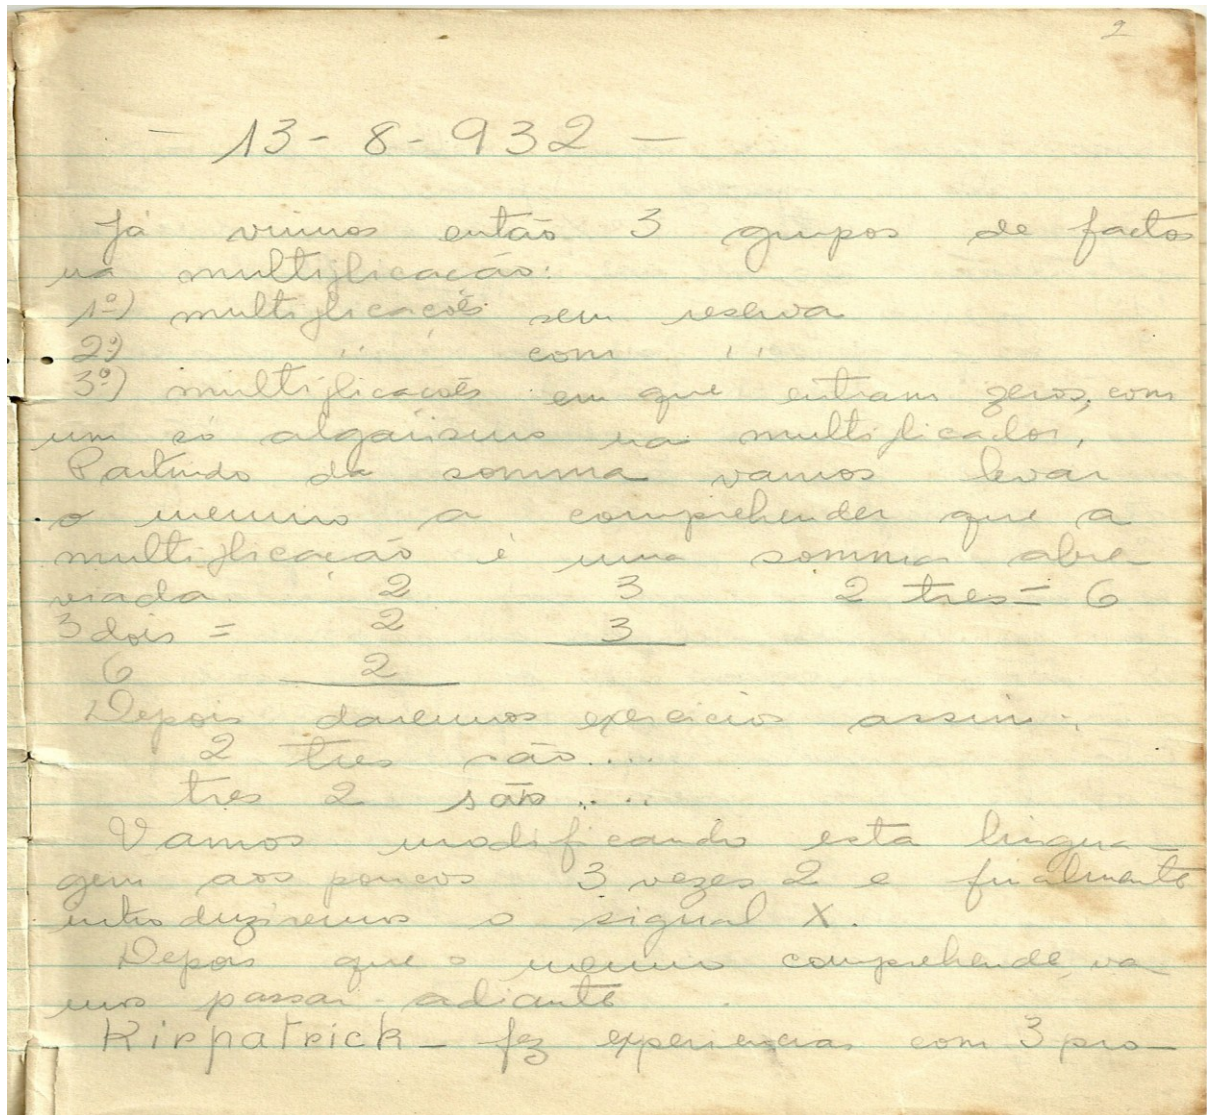 2
- 13 - 8 - 932 -
Já vimos então 3 grupos de factos
na multiplicação:
1º) multiplicações sem reserva
2º) " " com " "
3º) multiplicacões em que entram zeros, com
um só algarismo na multiplicador,
Partindo da somma vamos levar
o menino a comprehender que a
multiplicação é uma somma abre-
viada 2 3 2 tres = 6
3 dois = 2 3
6 2
Depois daremos exercicios assim:
2 tres são....
tres 2 são....
Vamos modificando esta lingua-
gem aos poucos 3 vezes 2 e finalmente
introduziremos o signal X.
Depois que o menino comprehende, va-
mos passar adiante
Kirpatrick - fez experiencias com 3 pro-